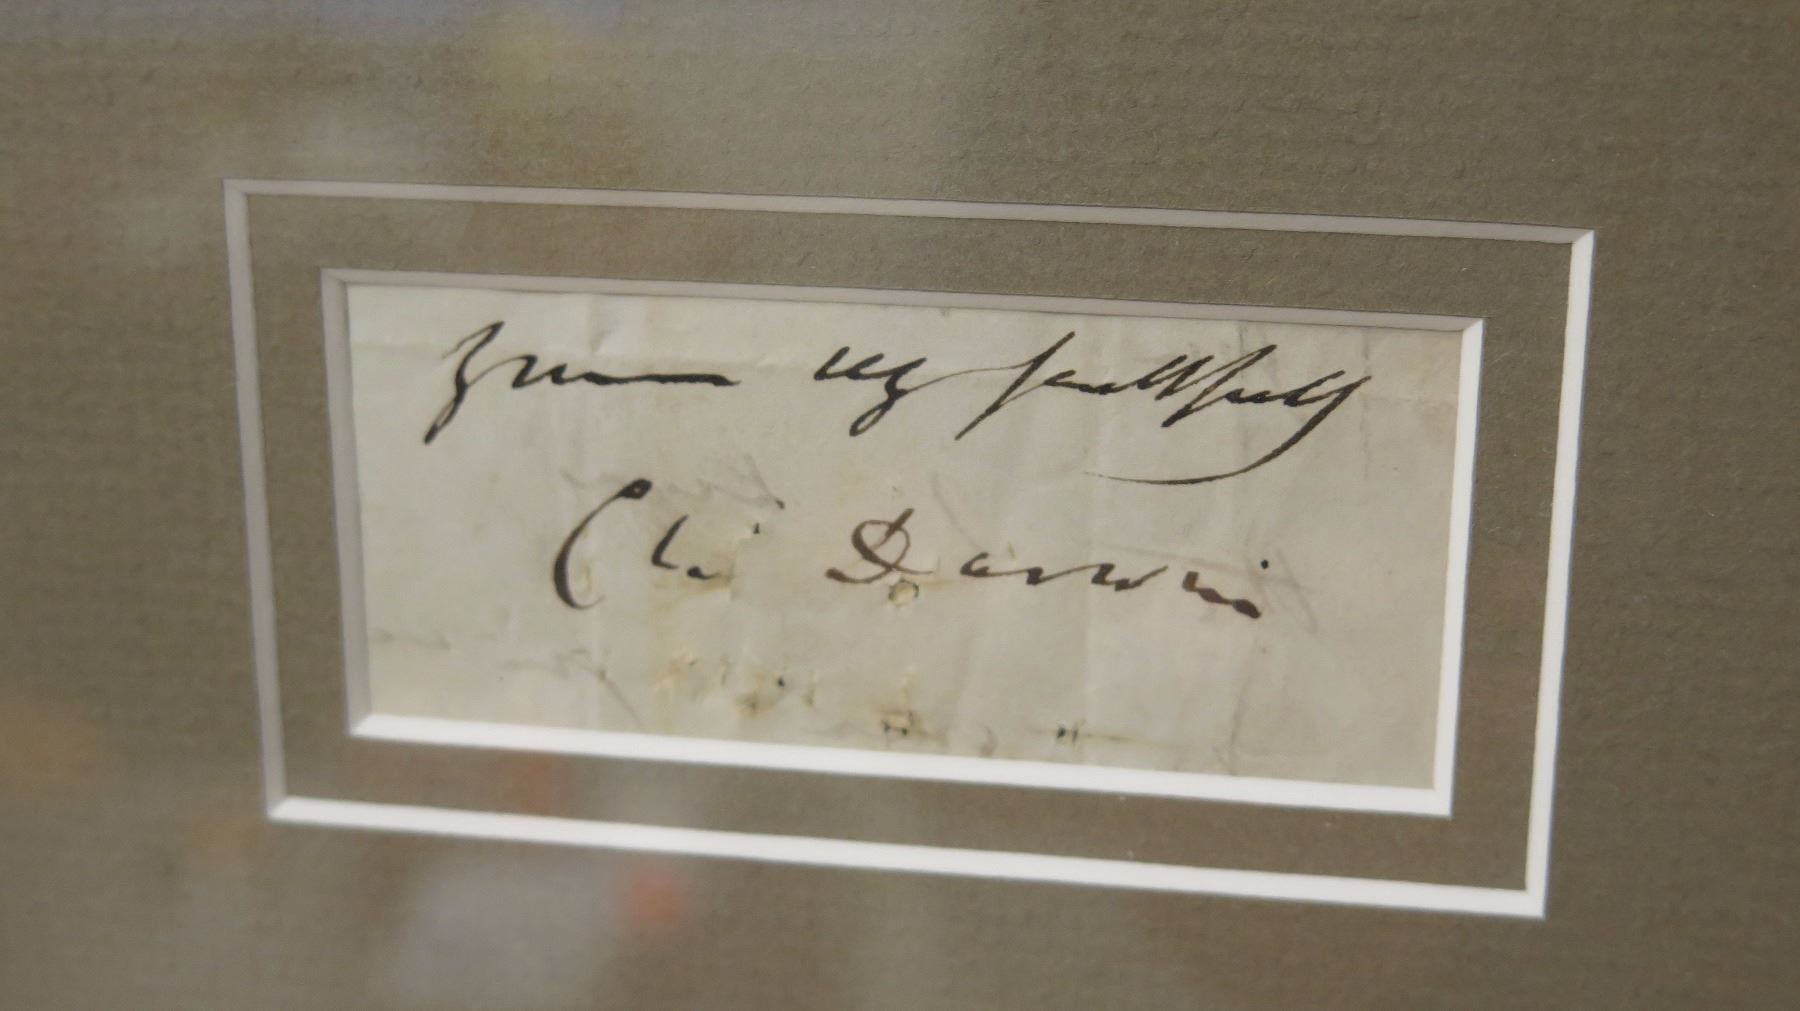 Yours very faithfully
Ch. Darwin